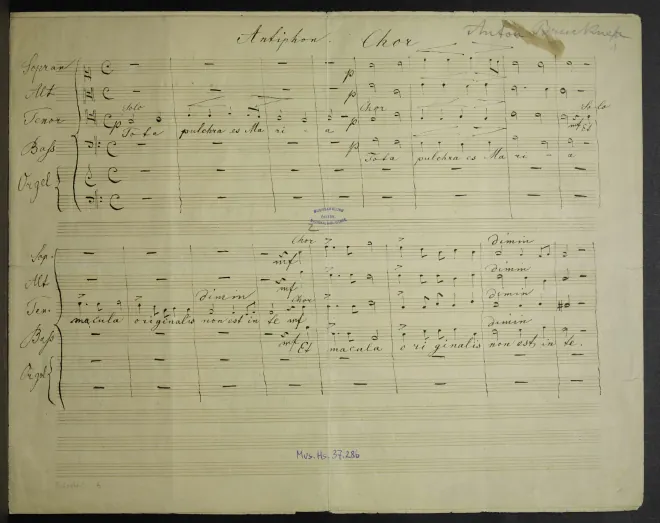 Antiphon. Chor Anton Bruckner
Sopran
p
Alt
p
Tenor Solo Chor Solo
p Tota pulchra es Ma ri - a mf Et
Bass
p Tota pulchra es Ma ri - a
Orgel
2
Sop. Chor dimin
mf
Alt dimin
mf
Ten. dimin Chor dimin
macula originalis non est in te mf
Bass dimin
mf Et macula o ri ginalis non est in te.
Orgel
Mus. Hs. 37.286